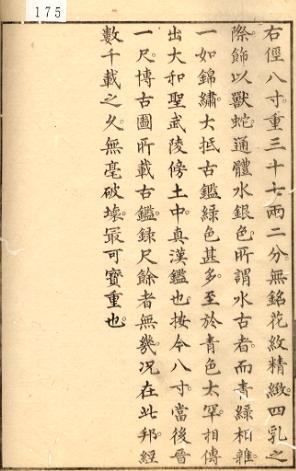 175
右徑八寸。重三十七兩二分無銘花紋精緻。四乳之
際飾以獸蛇。通體水銀色。所謂水古者。而青綠相雜
一如錦繡。大抵古鑑綠色甚多。至於青色太罕。相傳
出大和聖武陵傍土中。真漢鑑也。按今八寸。當後晉
一尺。博古圖所載古鑑。錄尺餘者無幾。況在此邦。經
數千載之久。無毫破壞。最可寳重也。